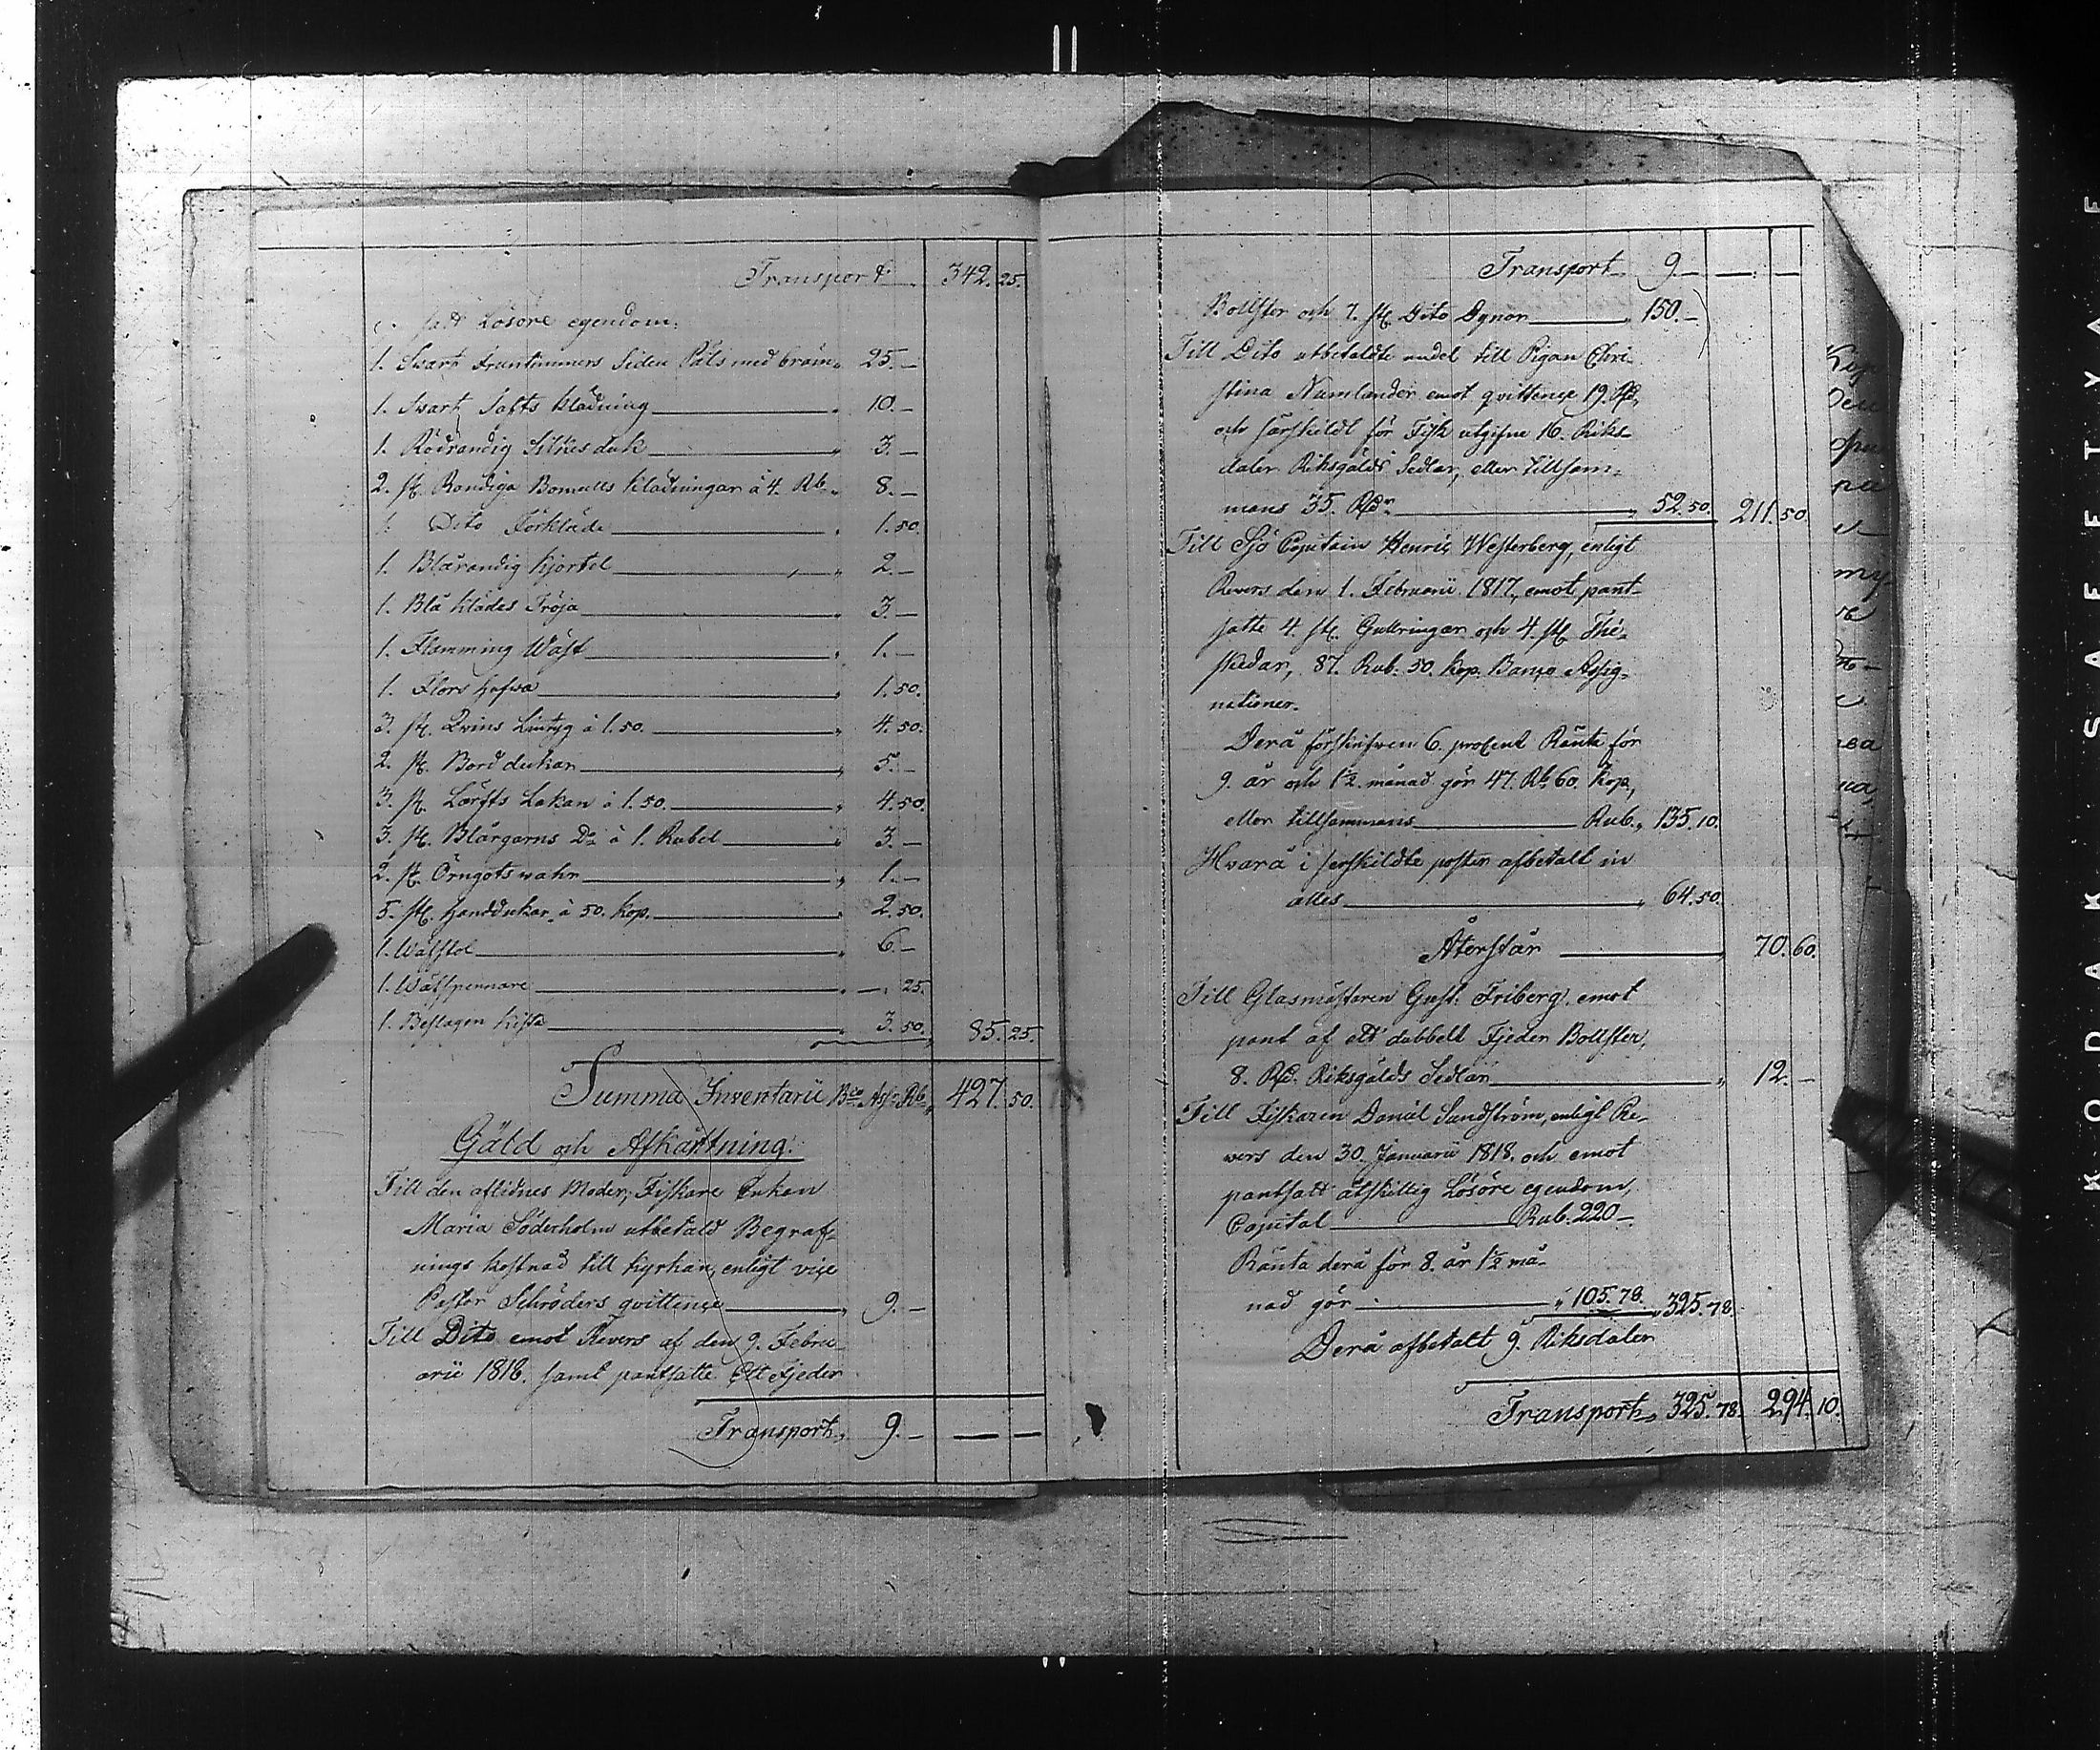 Transport 342. 25.
satt Lösöre egendom:
1. Svart Fruntimmers Siden Päls med bräm „ 25. —
1. Svart Tafts Klädning „ 10. —
1. Rödrandig Silkesduk „ 3. —
2. st. Randiga Bomulls Klädningar à 4. Rb. „ 8. —
1. Dito Förkläde „ 1. 50.
1. Blårandig Kjortel „ 2. —
1. Blå Klädes Tröja „ 3. —
1. Flamming Wäst „ 1. —
1. Flors Hufva „ 1. 50.
3. st. Qvins Lintyg à 1. 50. „ 4. 50.
2. st. Bord dukar „ 5. —
3. st. Lärfts Lakan à 1. 50. „ 4. 50.
3. st. Blårgarns Do à 1. Rubel „ 3. —
2. st. Örngåtswahr „ 1. —
5. st. Handdukar à 50. Kop. „ 2. 50.
1. Wäfstol „ 6. —
1. Wäfspennare „ —. 25.
1. Beslagen Kista „ 3. 50. 85. 25.
Summa Inventarii Bco Ass. Rb. 427. 50.
Gäld och Afkårttning:
Till den aflidnes Moder, Fiskare Enkan
Maria Söderholm utbetald Begraf-
nings kostnad till Kyrkan, enligt vice
Pastor Schröders qvittence „ 9. —
Till Dito emot Revers af den 9. Febru-
arii 1818. samt pantsatte Ett Fjeder
Transport, 9. — — —
Transport 9. — — —
Bollster och 7. st. Dito Dynor „ 150. —
Till Dito utbetaldte andel till Pigan Chri-
stina Numlander emot qvittence 19. Rd.
och särskildt för Fisk utgifne 16. Riks-
daler Riksgälds Sedlar, eller tillsam-
mans 35. Rdr „ 52. 50. 211. 50.
Till Sjö Capitain Henric Westerberg, enligt
Revers den 1. Februarii 1817, emot pant-
satte 4. st. Gullringar och 4. st. Thé-
skedar, 87. Rub. 50. Kop. Banco Assig-
nationer.
Derå förskrifven 6. procent Ränta för
9. år och 1½ månad gör 47. Rb. 60. Kop,
eller tillsammans Rub. „ 135. 10.
Hvarå i serskildte poster afbetalt in
alles „ 64. 50.
Återstår „ 70. 60.
Till Glasmästaren Gust. Friberg, emot
pant af ett dubbelt Fjeder Bollster,
8. Rd. Riksgälds Sedlar „ 12. —
Till Fiskaren Daniel Sundström, enligt Re-
vers den 30. Januarii 1818. och emot
pantsatt åtskillig Lösöre egendom,
Capital Rub. 220 —
Ränta derå för 8. år 1½ må-
nad gör „ 105. 78. „ 325. 78.
Derå afbetalt 9. Riksdaler
Transport, 325. 78. 294. 10.
KODAK SAFETY